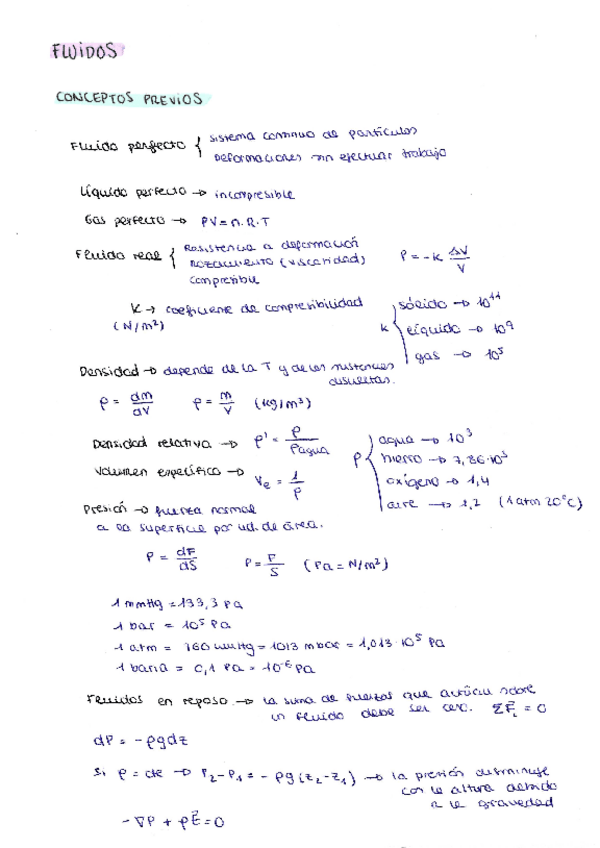 FLUIDOS
CONCEPTOS PREVIOS
Fluido perfecto { sistema continuo de partículas
Deformaciones sin efectuar trabajo
Líquido perfecto → incompresible
Gas perfecto → PV = n.R.T
Fluido real { Resistencia a deformación
rozamiento (viscosidad)
compresible
P = -K ΔV/V
K → coeficiente de compresibilidad
(N/m²)
K { sólido → 10¹¹
líquido → 10⁹
gas → 10⁵
Densidad → depende de la T y de las sustancias
disueltas.
ρ = dm/dV ρ = m/V (kg/m³)
Densidad relativa → ρ' = ρ/ρagua
Volumen específico → Ve = 1/ρ
ρ { agua → 10³
hierro → 7,86·10³
oxígeno → 1,4
aire → 1,2 (1 atm 20°C)
Presión → fuerza normal
a la superficie por ud. de área.
P = dF/dS P = F/S (Pa = N/m²)
1 mmHg = 133,3 Pa
1 bar = 10⁵ Pa
1 atm = 760 mmHg = 1013 mbar = 1,013·10⁵ Pa
1 baria = 0,1 Pa = 10⁻⁶ Pa
Fluidos en reposo → la suma de fuerzas que actúan sobre
un fluido debe ser cero. ΣF⃗ᵢ = 0
dP = -ρgdz
Si ρ = cte → P₂-P₁ = -ρg(z₂-z₁) → la presión disminuye
con la altura debido
a la gravedad
-∇P + ρE⃗ = 0